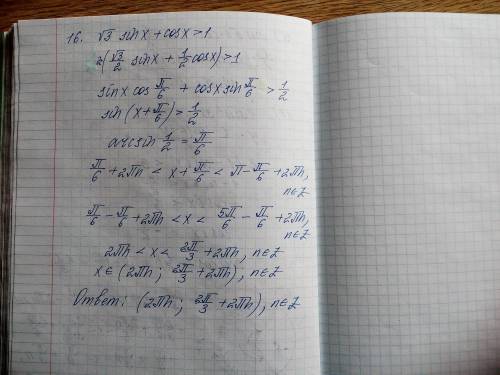 16. √3 sinx + cosx > 1
2(√3/2 sinx + 1/2 cosx) > 1
sinx cos π/6 + cosx sin π/6 > 1/2
sin(x + π/6) > 1/2
arcsin 1/2 = π/6
π/6 + 2πn < x + π/6 < π - π/6 + 2πn,
n∈Z
π/6 - π/6 + 2πn < x < 5π/6 - π/6 + 2πn,
n∈Z
2πn < x < 2π/3 + 2πn, n∈Z
x∈(2πn; 2π/3 + 2πn), n∈Z
Ответ: (2πn; 2π/3 + 2πn), n∈Z